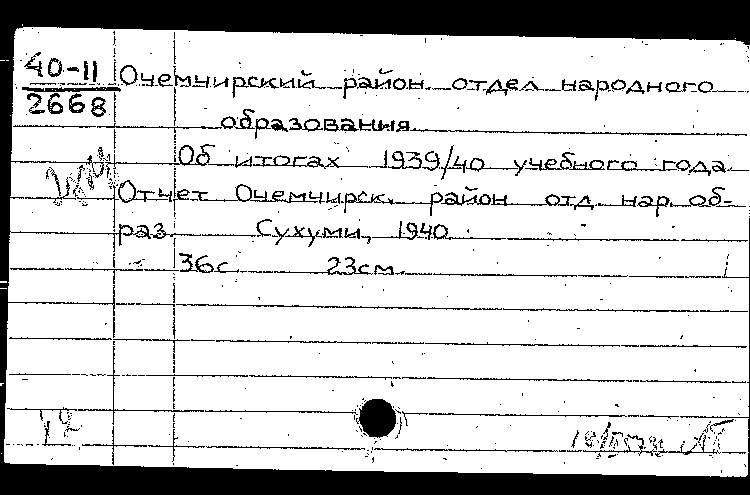 40-11
2668
Очемчирский район. отдел народного
образования.
Об итогах 1939/40 учебного года.
Отчет Очемчирск. район. отд. нар. об-
раз. Сухуми, 1940.
36с. 23см.
42